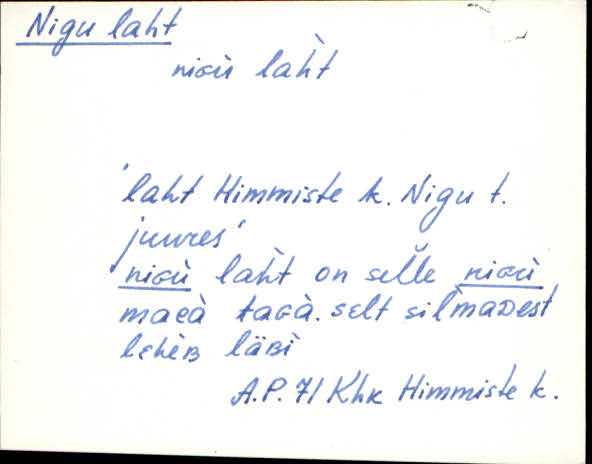 Nigu laht
niɢù làht
'laht Himmiste k. Nigu t.
juures'
niɢù làht on sèlle niɢù
maᴇà taɢà. selt silmaᴅest
lɛhèʙ läʙì
A.P. 71 Khk Himmiste k.